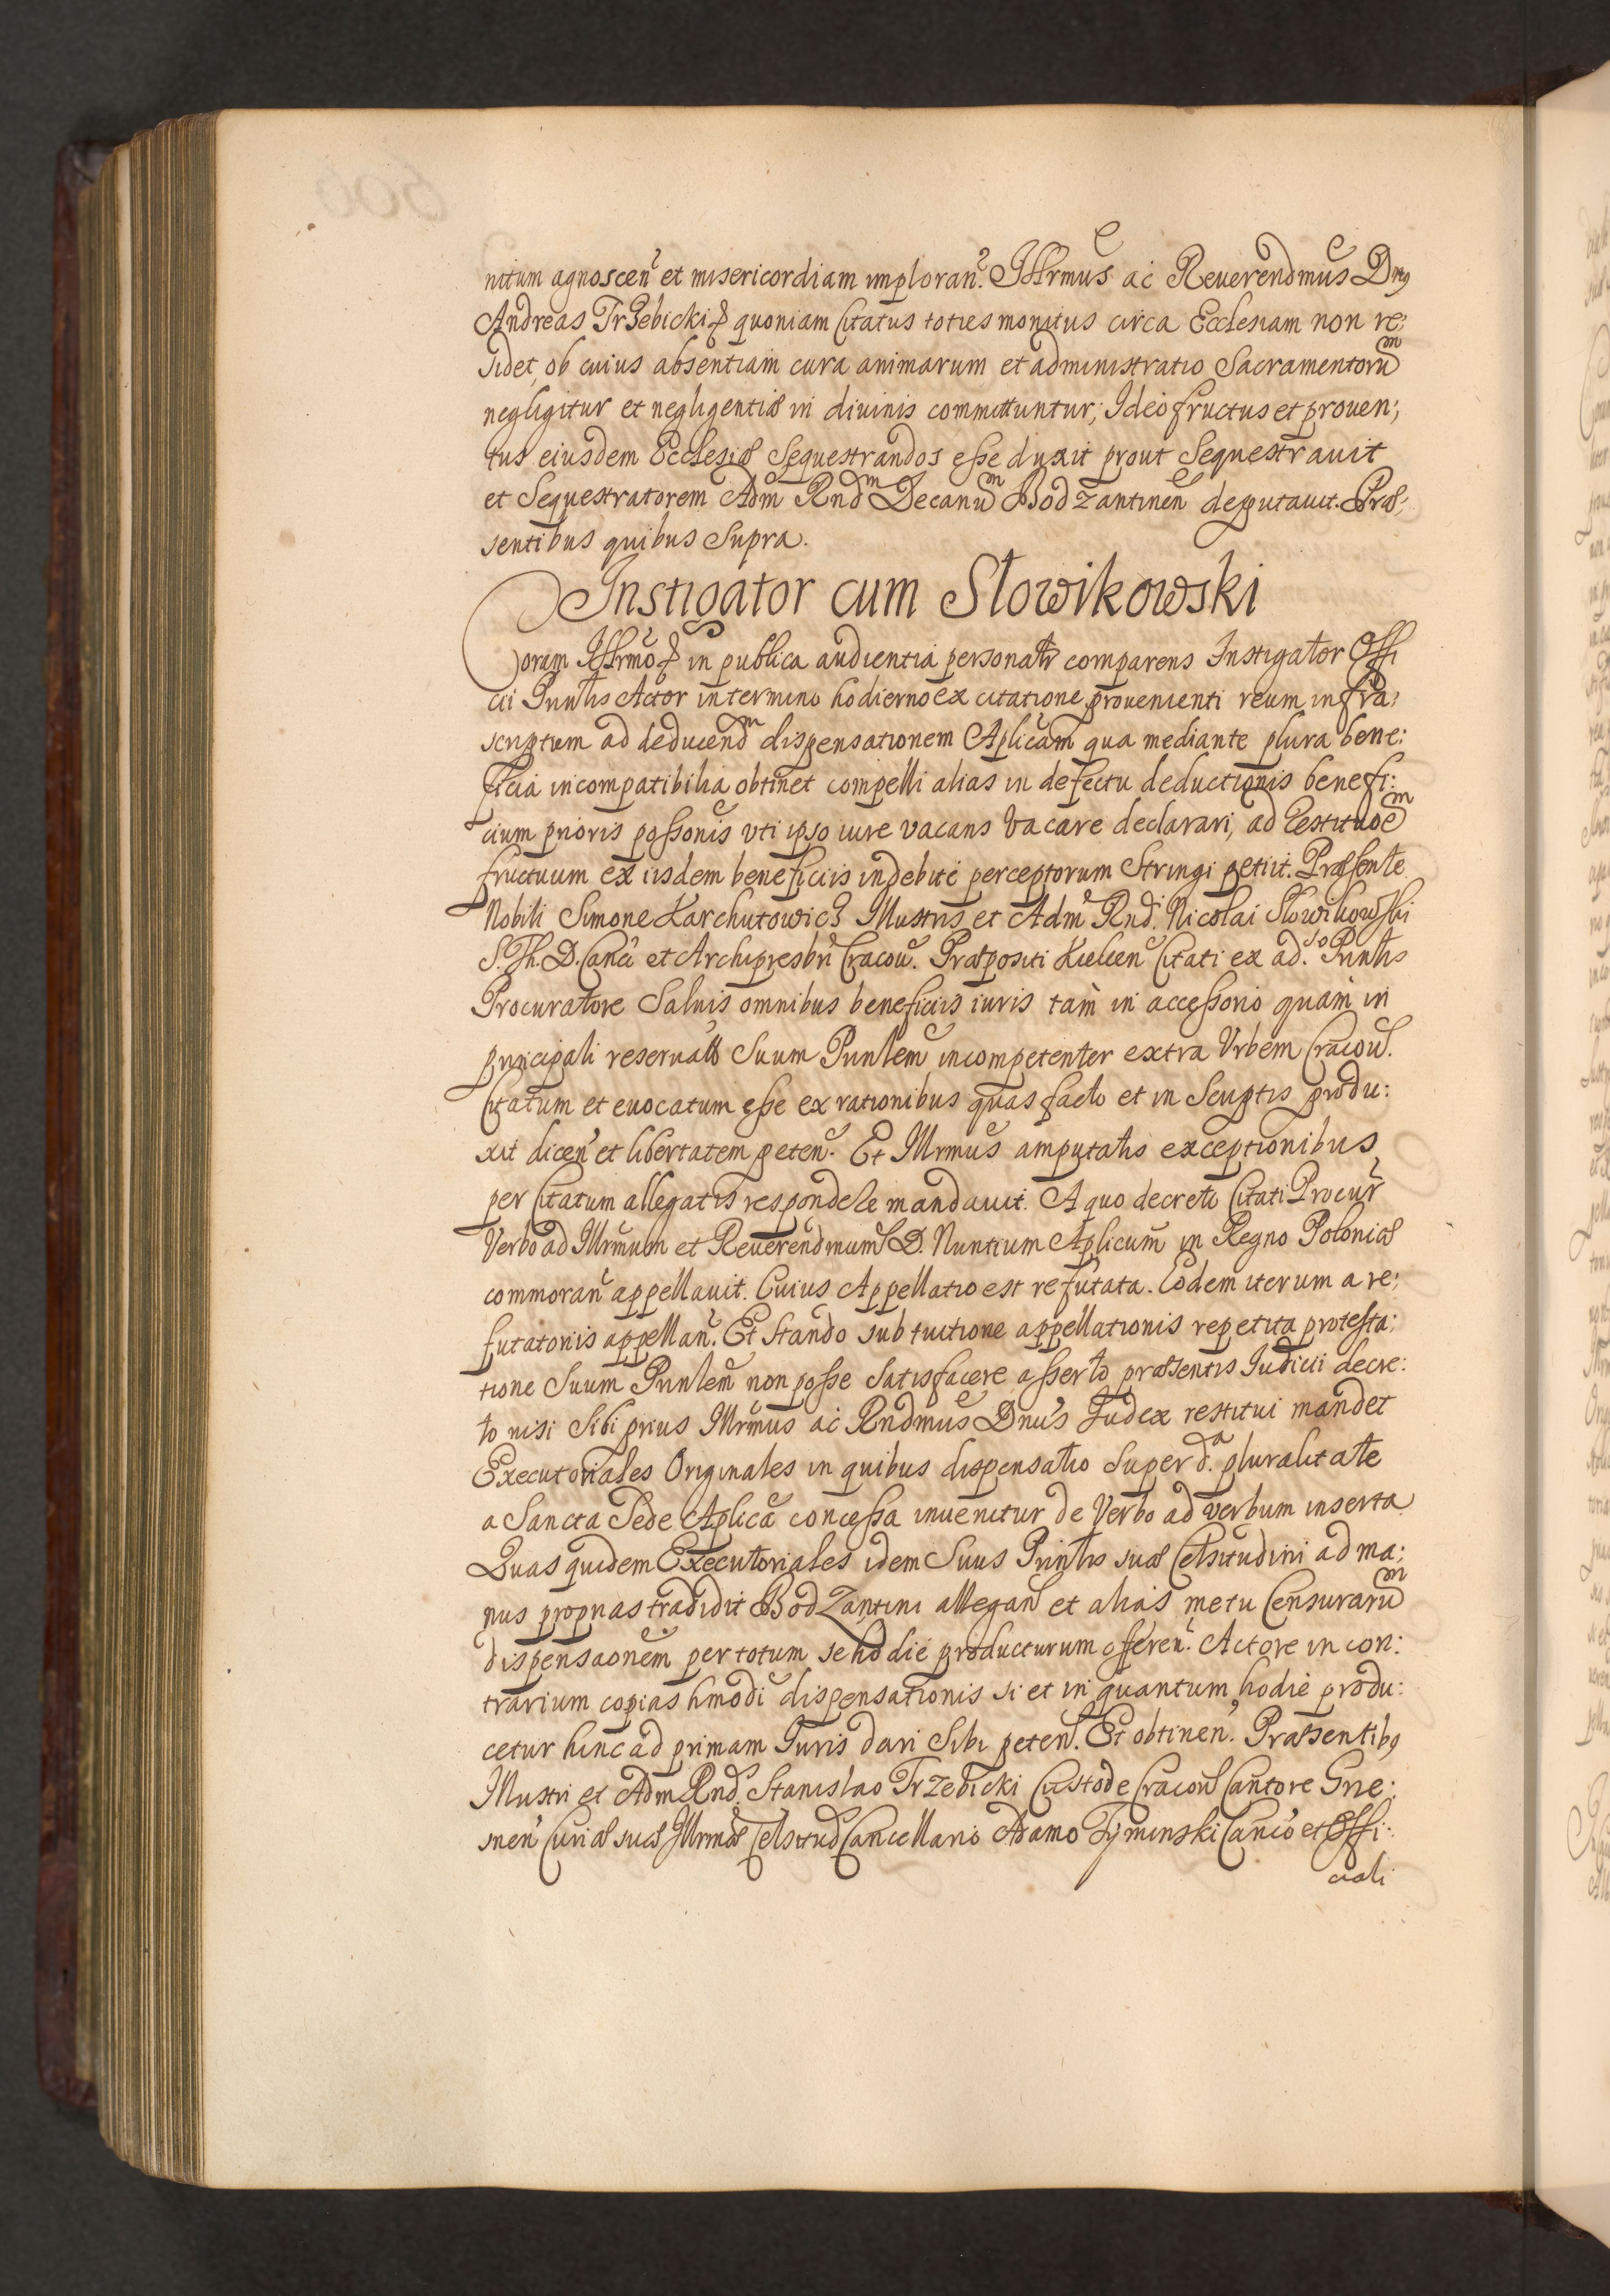 nitum agnoscen̄ et misericordiam imploran̄. Illrmus ac Reuerendmus Dnus
Andreas Trzebicki quoniam Citatus toties monitus circa Ecclesiam non re:
sidet, ob cuius absentiam cura animarum et administratio Sacramentorūm
negligitur et negligentiæ in diuinis committuntur; Ideo fructus et prouen:
tus eiusdem Ecclesiæ Sequestrandos esse duxit prout Sequestrauit
et Sequestratorem Adm Rndm Decanūm Bodzantinen̄ deputauit. Præ:
sentibus quibus Supra.
Instigator cum Słowikowski
Coram Illrmo in publica audientia personatr comparens Instigator Offi
cii Pnntis Actor in termino hodierno ex citatione prouenienti reum infra:
scriptum ad deducendm dispensationem Aplicam qua mediante plura bene:
ficia incompatibilia obtinet compelli alias in defectu deductionis benefi:
cium prioris possonis vti ipso iure vacans vacare declarari, ad restituōem
fructuum ex iisdem beneficiis indebite perceptorum Stringi petiit. Præsente
Nobili Simone Karchutowicz Illustris et Adm Rndi Nicolai Słowikowski
S. Th. D. Canci et Archipresbri Cracou. Præpositi Kielcen̄ Citati ex adso Pnntis
Procuratore Saluis omnibus beneficiis iuris tam in accessorio quam in
principali reseruatis Suum Pnnlem incompetenter extra Vrbem Cracou.
Citatum et euocatum esse ex rationibus quas facto et in Scriptis produ:
xit dicen̄ et libertatem peten̄. Et Illrmus amputatis exceptionibus
per Citatum allegatis respondere mandauit. A quo decreto Citati Procur
Verbo ad Illrmum et Reuerendmum D. Nuntium Aplicum in Regno Poloniæ
commoran̄ appellauit. Cuius Appellatio est refutata. Eodem iterum a re:
futatoriis appellan̄. Et Stando sub tuitione appellationis repetita protesta:
tione Suum Pnnlem non posse Satisfacere asserto præsentis Iudicii decre:
to nisi Sibi prius Illrmus ac Rndmus Dnus Iudex restitui mandet
Executoriales Originales in quibus dispensatio Super da. pluralitate
a Sancta Sede Aplica concessa inuenitur de Verbo ad verbum inserta
Quas quidem Executoriales idem Suus Pnnlis suæ Celsitudini ad ma:
nus proprias tradidit Bodzantini allegan̄ et alias metu Censurarūm
dispensaonem per totum se hodie producturum offeren̄. Actore in con:
trarium copias hmodi dispensationis si et in quantum hodie produ:
cetur hinc ad primam Iuris dari Sibi peten̄. Et obtinen̄. Præsentibus
Illustri et Adm Rndo. Stanislao Trzebicki Custode Cracou Cantore Gne:
snen̄ Curiæ suæ Illrmæ Celsitud Cancellario Adamo Tyminski Canco et Offi:
ciali